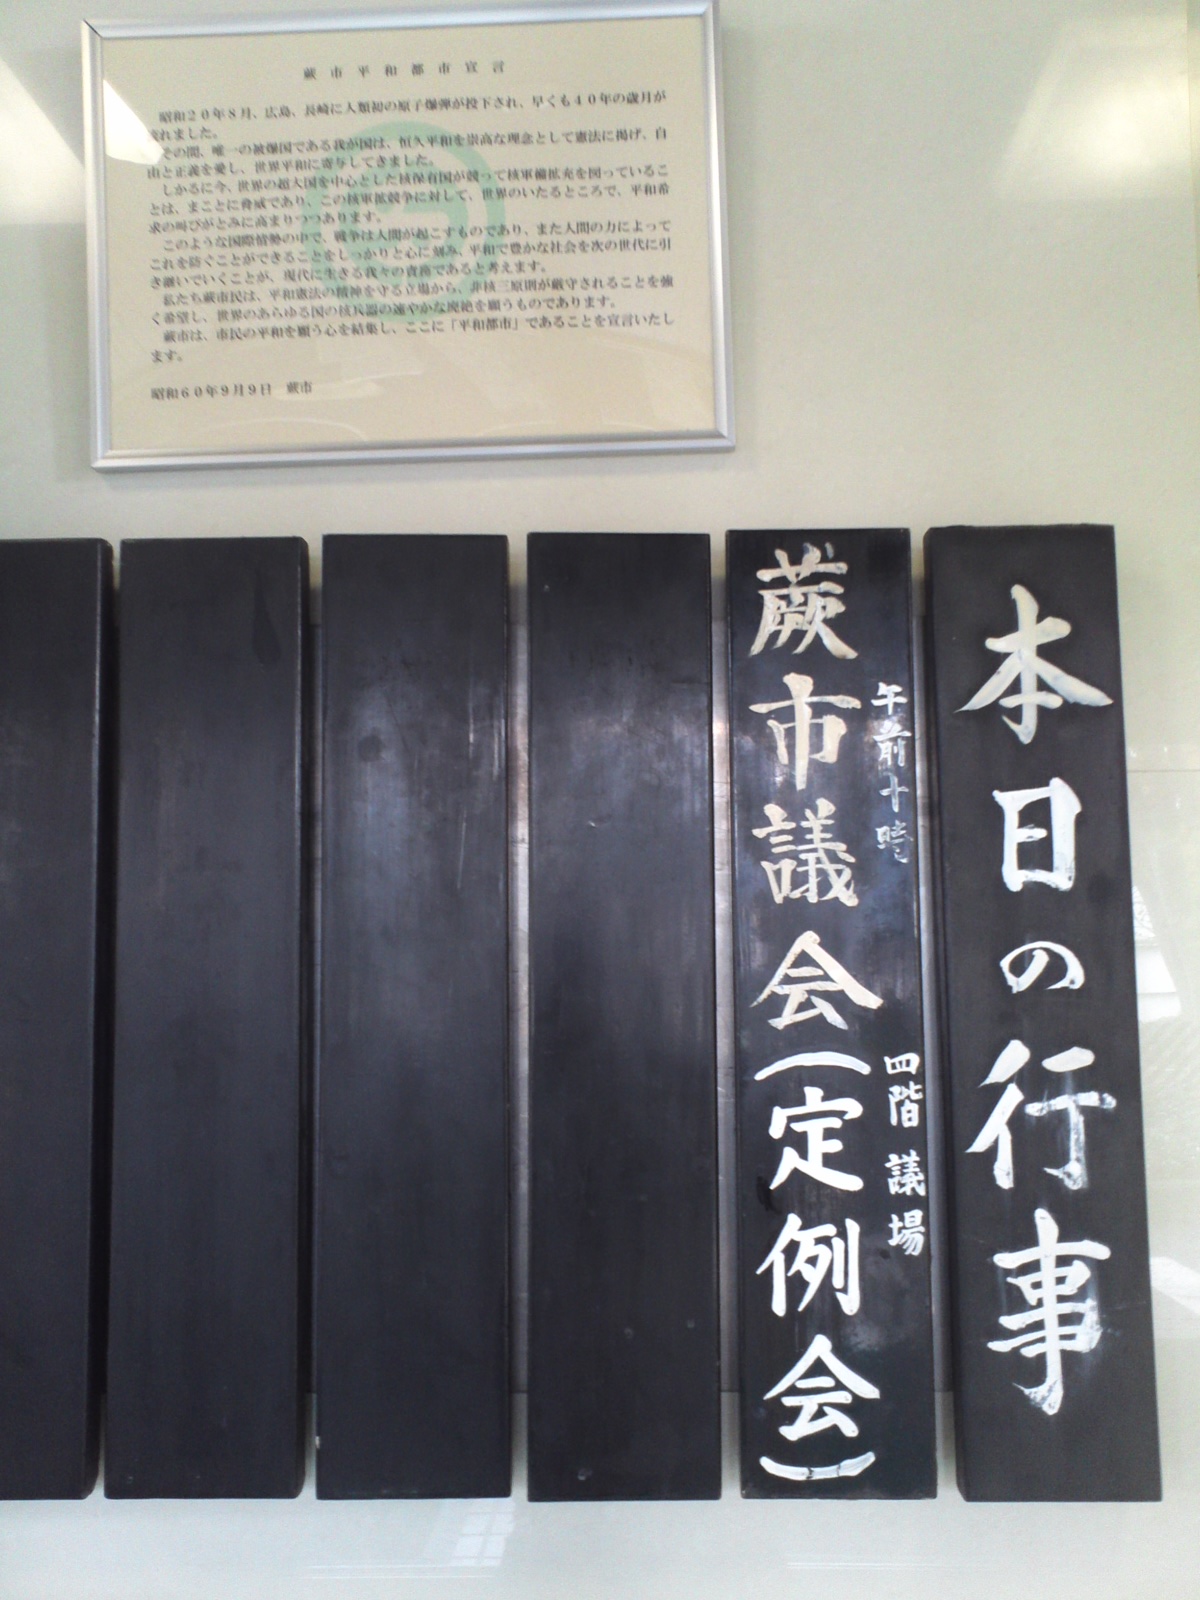 蕨市平和都市宣言
昭和20年8月、広島、長崎に人類初の原子爆弾が投下され、早くも40年の歳月が
流れました。
その間、唯一の被爆国である我が国は、恒久平和を崇高な理念として憲法に掲げ、自
由と正義を愛し、世界平和に寄与してきました。
しかるに今、世界の超大国を中心とした核保有国が競って核軍備拡充を図っているこ
とは、まことに脅威であり、この核軍拡競争に対して、世界のいたるところで、平和希
求の叫びがとみに高まりつつあります。
このような国際情勢の中で、戦争は人間が起こすものであり、また人間の力によって
これを防ぐことができることをしっかりと心に刻み、平和で豊かな社会を次の世代に引
き継いでいくことが、現代に生きる我々の責務であると考えます。
私たち蕨市民は、平和憲法の精神を守る立場から、非核三原則が厳守されることを強
く希望し、世界のあらゆる国の核兵器の速やかな廃絶を願うものであります。
蕨市は、市民の平和を願う心を結集し、ここに「平和都市」であることを宣言いたし
ます。
昭和60年9月9日 蕨市
本日の行事
午前十時 四階議場
蕨市議会(定例会)